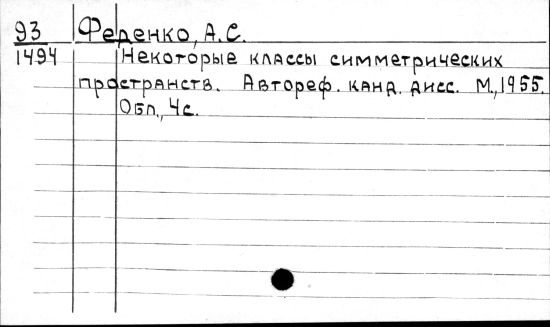 93 Феденко, А.С.
1494 Некоторые классы симметрических
пространств. Автореф. канд. дисс. М., 1955.
Обл., 4с.